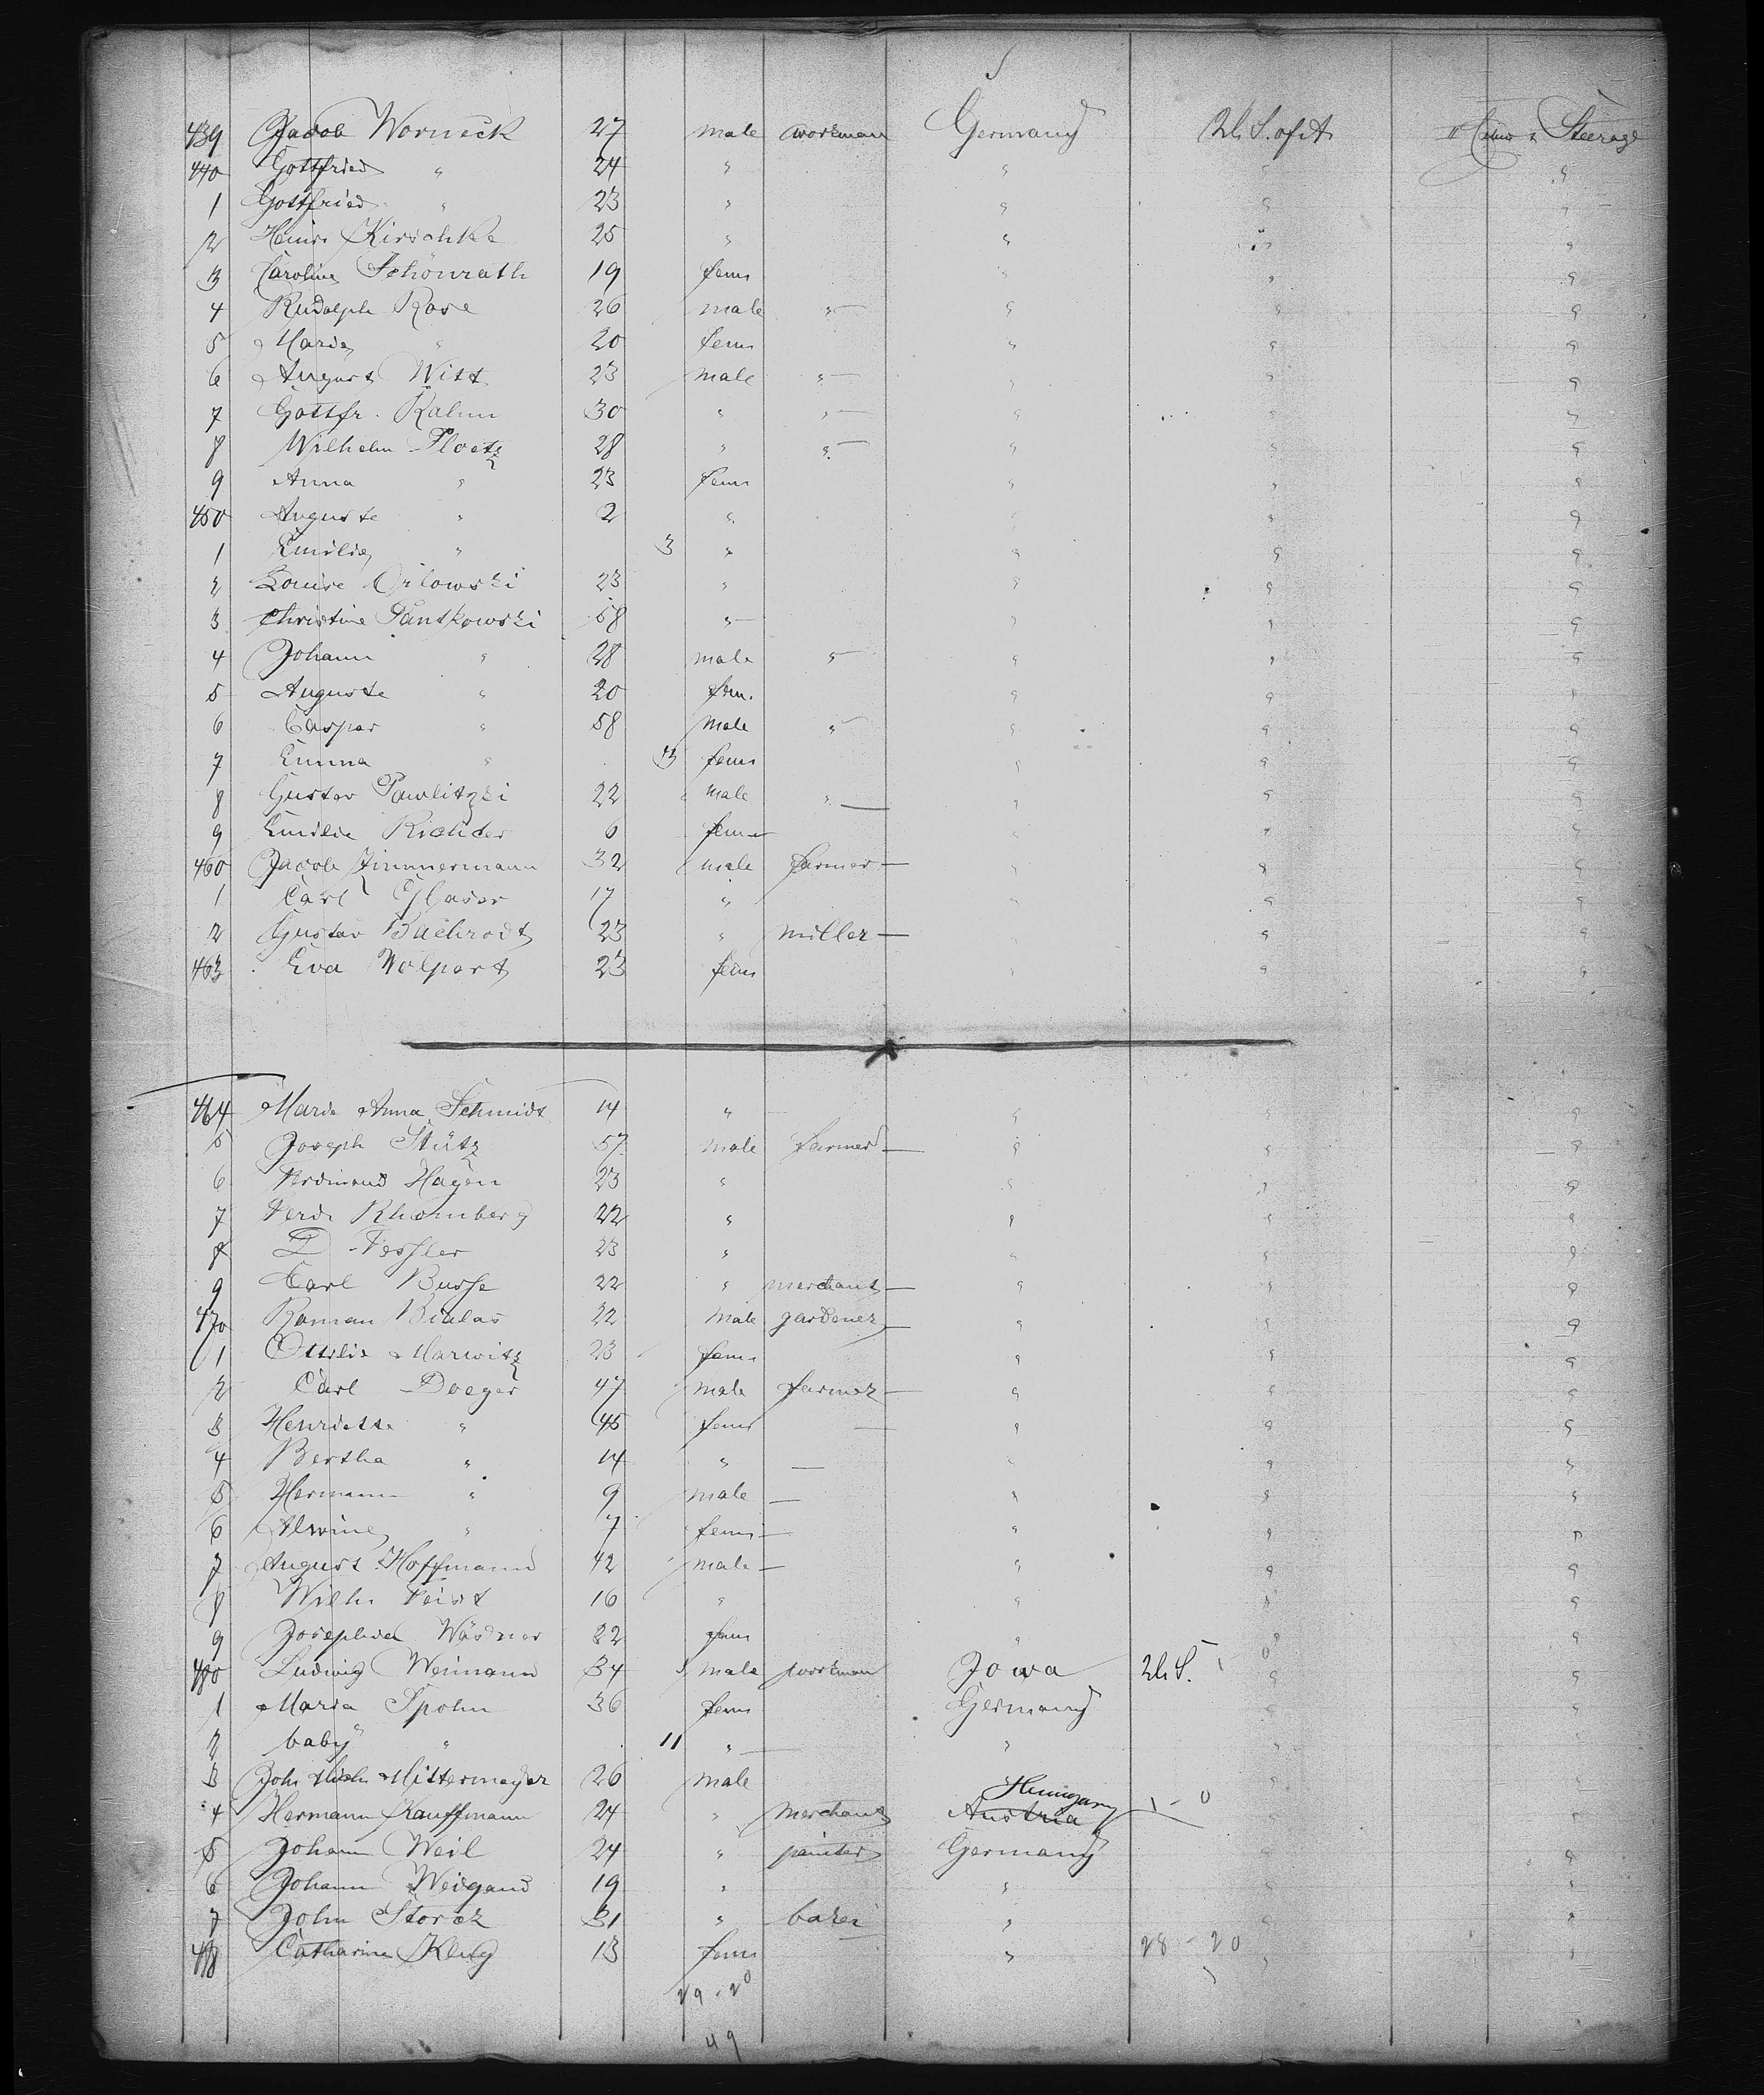 439 Jacob Worneck 27 male workman Germany U.S. of A. Steerage
440 Gottfried " 24 " " " "
1 Gottfried " 23 " " " "
2 Heinr. Kirschke 25 " " " "
3 Caroline Schönrath 19 fem " " "
4 Rudolph Rose 26 male " " " "
5 Maria " 20 fem " " "
6 August Witt 23 male " " " "
7 Gottfr. Rahm 30 " " " " "
8 Wilhelm Ploetz 28 " " " " "
9 Anna " 23 fem " " "
450 Auguste " 2 " " " "
1 Emilie " 3 " " " "
2 Louise Orlowski 23 " " " "
3 Christine Pantkowski 58 " " " "
4 Johann " 28 male " " " "
5 Auguste " 20 fem. " " "
6 Caspar " 58 male " " " "
7 Emma " fem " " "
8 Gustav Pawlitzki 22 male " " " "
9 Emilie Richter 6 fem " " "
460 Jacob Zimmermann 32 male farmer " " "
1 Carl Glaser 17 " " " "
2 Gustav Bachrodt 23 " miller " " "
463 Eva Wolpert 23 fem " " "
464 Maria Anna Schmidt 14 " " " "
5 Joseph Stütz 57 male farmer " " "
6 Ferdinand Hagen 23 " " " "
7 Ferd. Rhomberg 22 " " " "
8 D. Fessler 23 " " " "
9 Carl Busse 22 " merchant " " "
470 Roman Bialas 22 male gardener " " "
1 Ottilie Marwitz 23 fem " " "
2 Carl Doeger 47 male farmer " " "
3 Henriette " 45 fem " " "
4 Bertha " 14 " " " "
5 Hermann " 9 male " " "
6 Alwine " 7 fem " " "
7 August Hoffmann 42 male " " "
8 Wilh. Feist 16 " " " "
9 Josephine 22 fem " " "
480 Ludwig Weimann 34 male workman Iowa U.S. "
1 Maria Spohn 36 fem Germany " "
2 baby " 11 " " " "
3 Joh. Mich. Mittermayer 26 male " "
4 Hermann Kauffmann 24 " merchant Austria Hungary 1 - 0 "
5 Johann Weil 24 " painter Germany " "
6 Johann Weigand 19 " " " "
7 John Storck 31 " baker " " "
488 Catharine King 13 fem " 28 - 20 " "
29 - 20
49